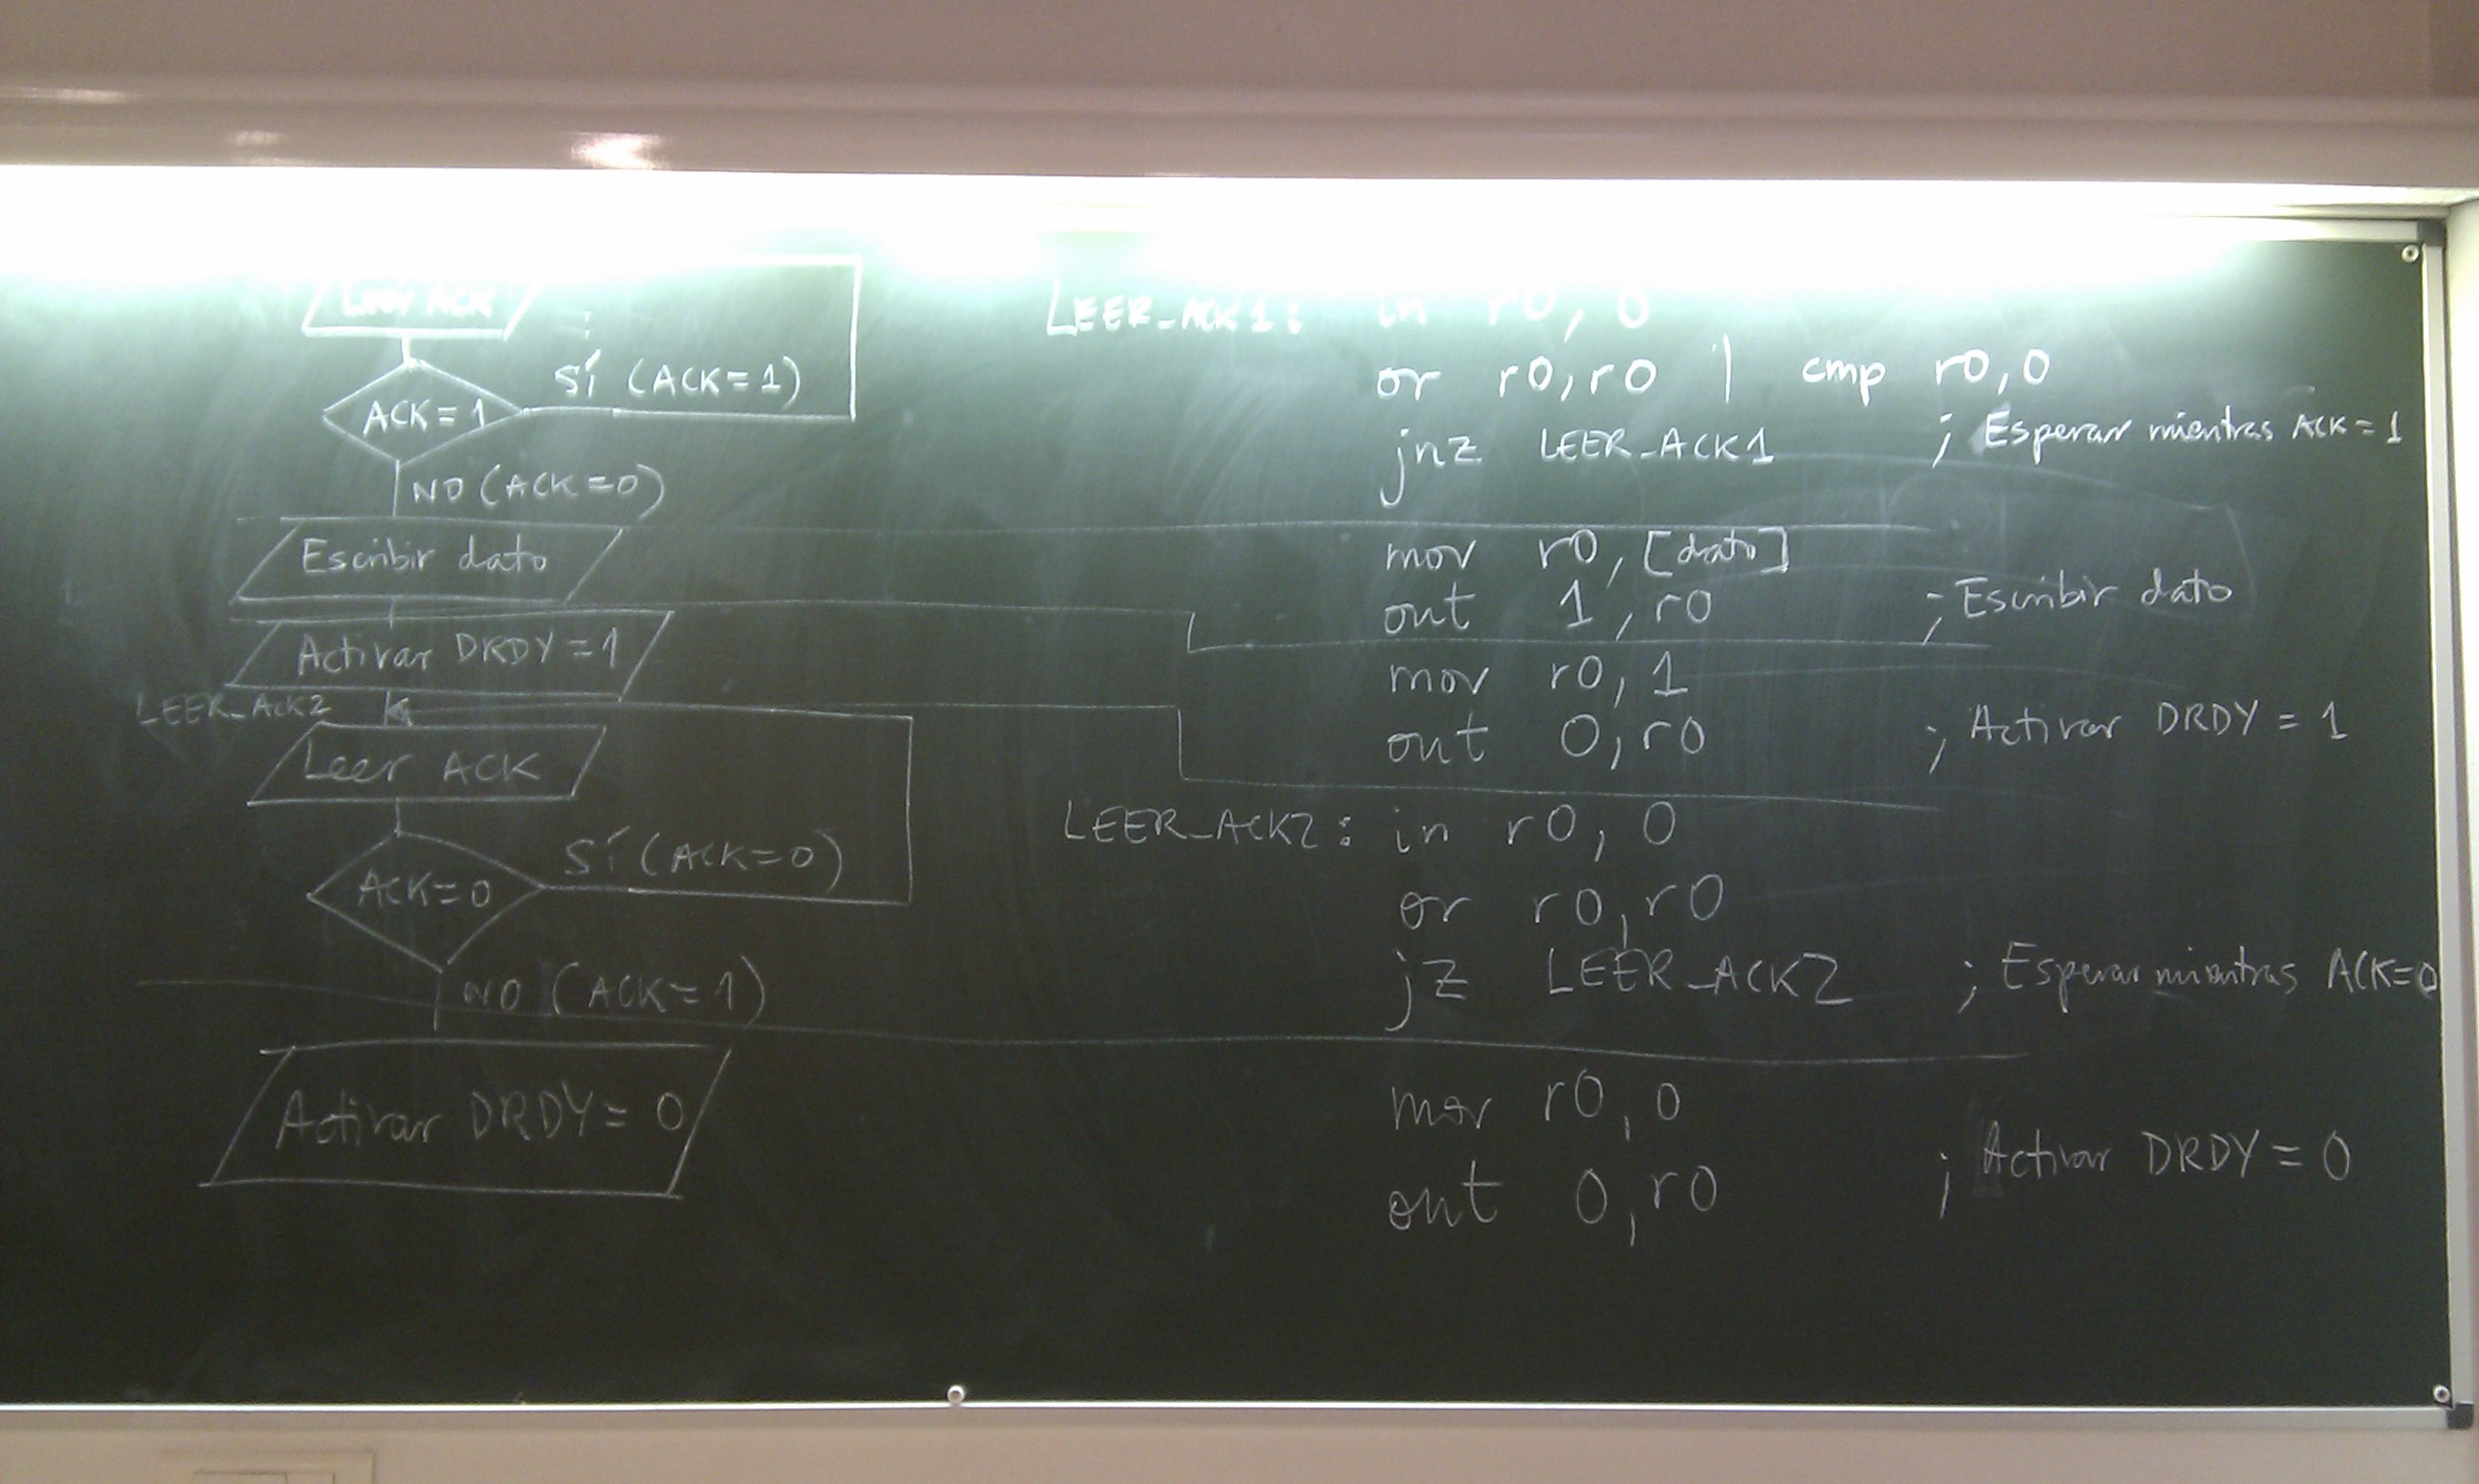 Leer ACK
SÍ (ACK=1)
ACK=1
NO (ACK=0)
Escribir dato
Activar DRDY=1
LEER_ACK2
Leer ACK
SÍ (ACK=0)
ACK=0
NO (ACK=1)
Activar DRDY=0
LEER_ACK1: in r0, 0
or r0,r0 | cmp r0,0
jnz LEER_ACK1 ; Esperar mientras ACK=1
mov r0,[dato]
out 1,r0 ; Escribir dato
mov r0,1
out 0,r0 ; Activar DRDY=1
LEER_ACK2: in r0, 0
or r0,r0
jz LEER_ACK2 ; Esperar mientras ACK=0
mov r0,0
out 0,r0 ; Activar DRDY=0